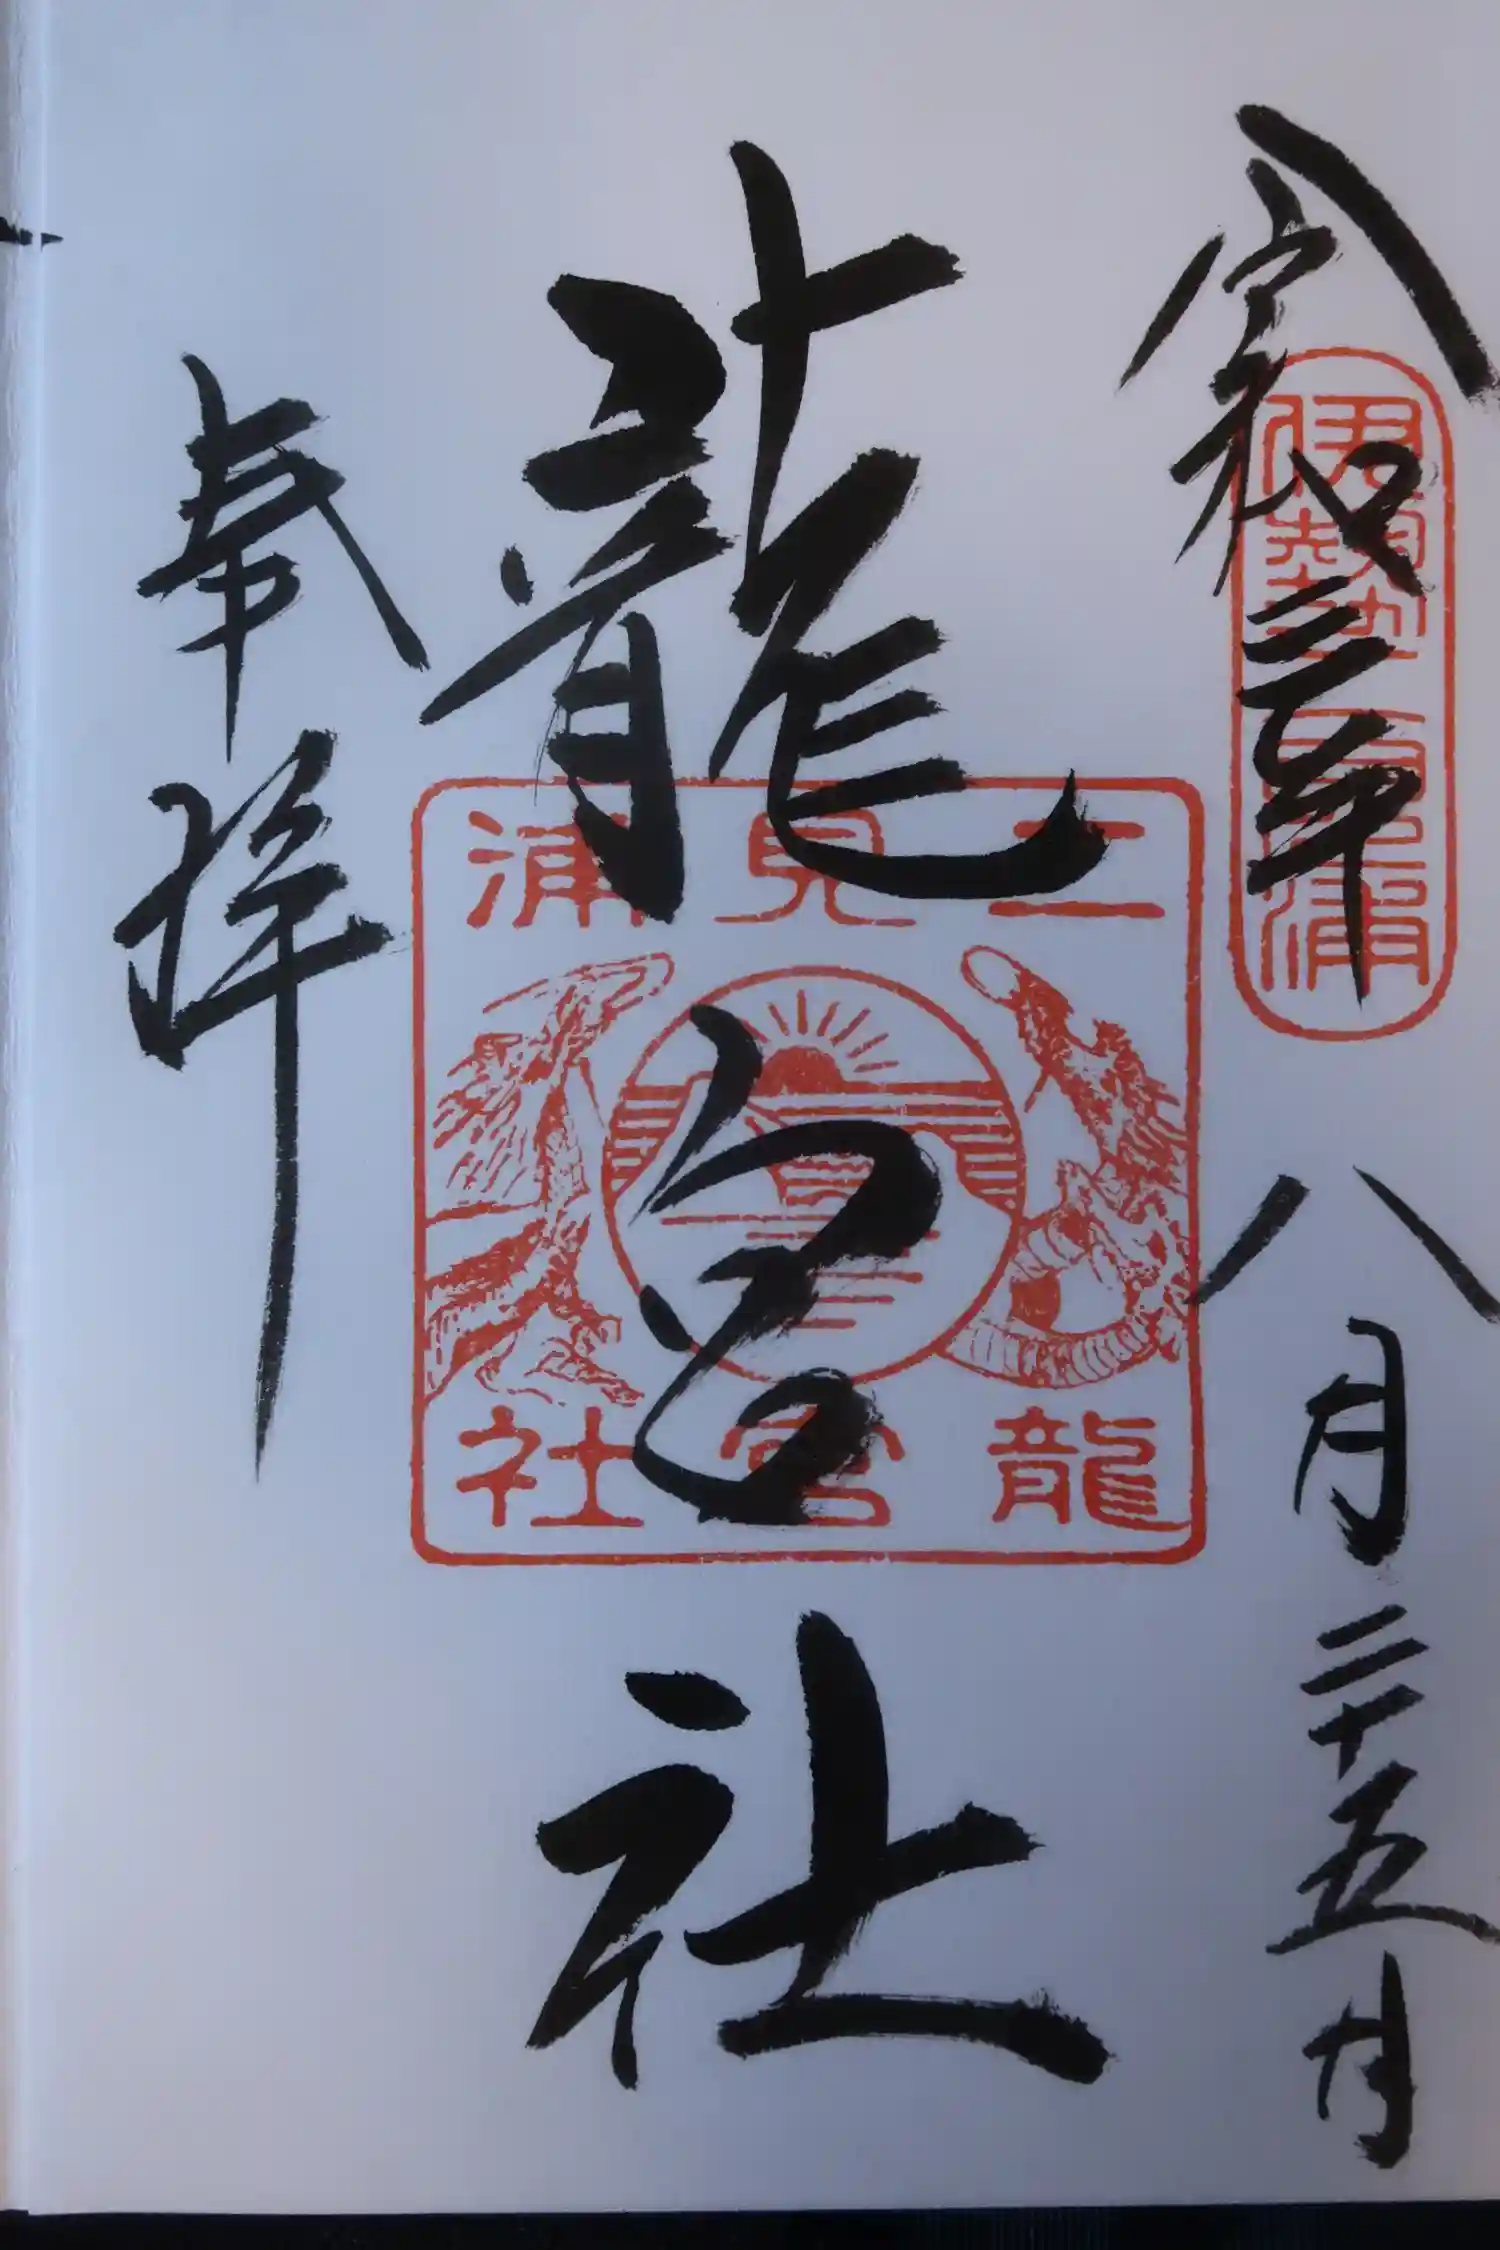 令和三年 八月二十五日
伊勢二見浦
龍宮社
二見浦
龍宮社
奉拝